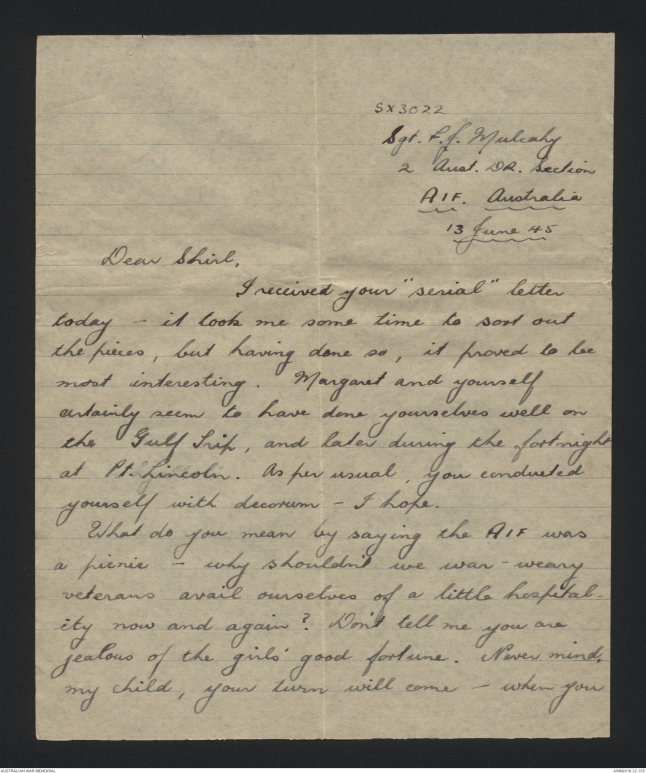 SX3022
Sgt. F. J. Mulcahy
2 Aust. DR. Section
AIF. Australia
13 June 45
Dear Shirl,
I received your "serial" letter
today – it took me some time to sort out
the pieces, but having done so, it proved to be
most interesting. Margaret and yourself
certainly seem to have done yourselves well on
the Gulf Trip, and later during the fortnight
at Pt. Lincoln. As per usual, you conducted
yourself with decorum – I hope.
What do you mean by saying the AIF was
a picnic – why shouldn't we war-weary
veterans avail ourselves of a little hospital-
ity now and again? Don't tell me you are
jealous of the girls' good fortune. Never mind,
my child, your turn will come – when you
AUSTRALIAN WAR MEMORIAL